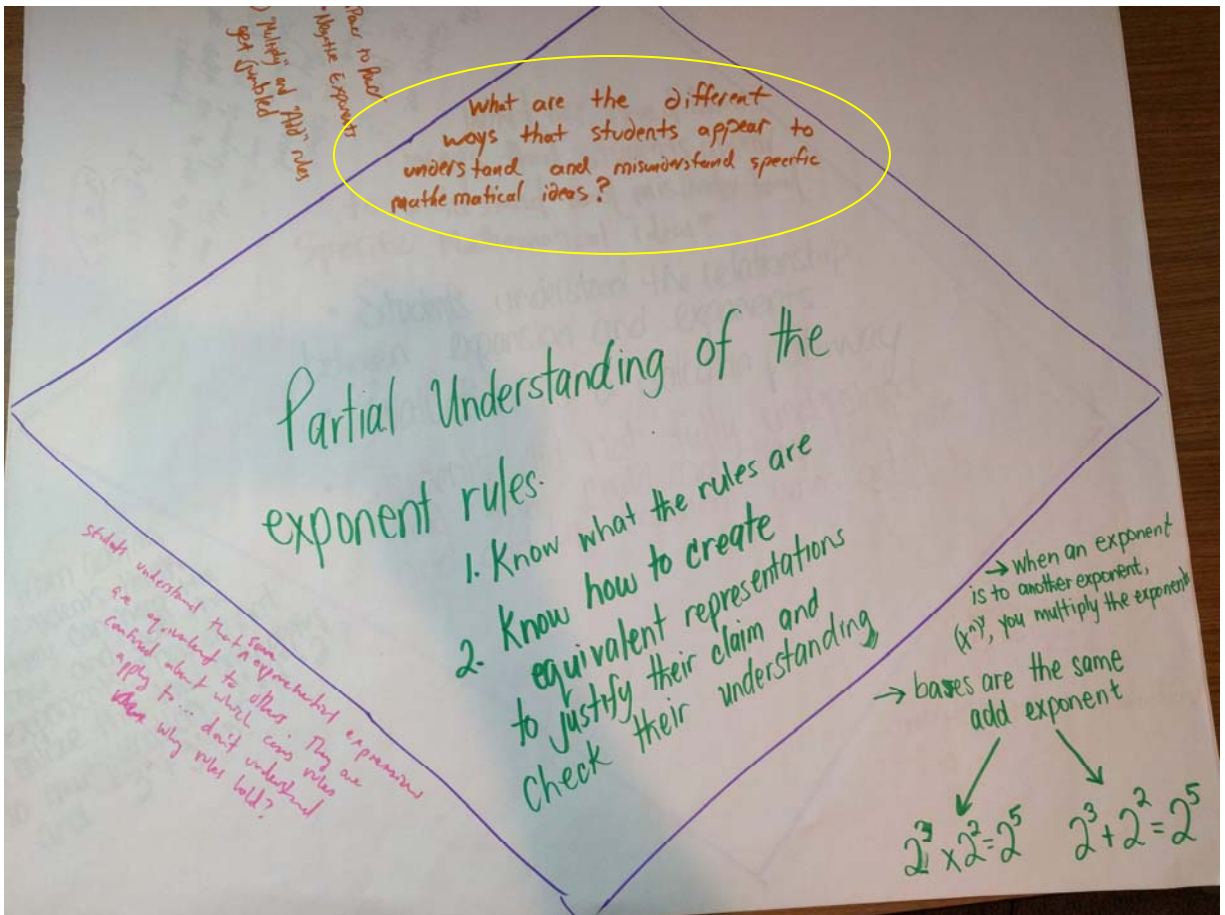 Power to Power
• Negative Exponents
) "Multiply" and "Add" rules
get jumbled
What are the different
ways that students appear to
understand and misunderstand specific
mathematical ideas?
Partial Understanding of the
exponent rules.
1. Know what the rules are
2. Know how to create
equivalent representations
to justify their claim and
check their understanding
students understand that some exponential expressions
are equivalent to others. They are
confused about which cases rules
apply to ... don't understand
why rules hold?
→ when an exponent
is to another exponent,
(xⁿ)ʸ, you multiply the exponents
→ bases are the same
add exponent
2³ x 2² = 2⁵
2³ + 2² = 2⁵